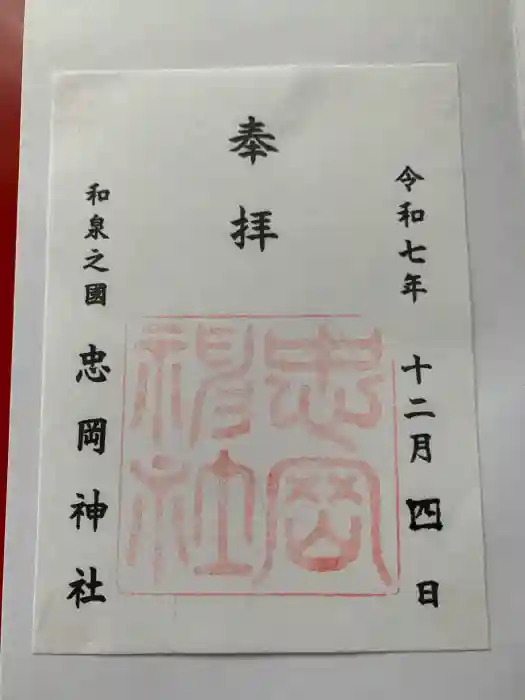 令和七年 十二月四日
奉拝
忠岡
神社
和泉之國 忠岡神社